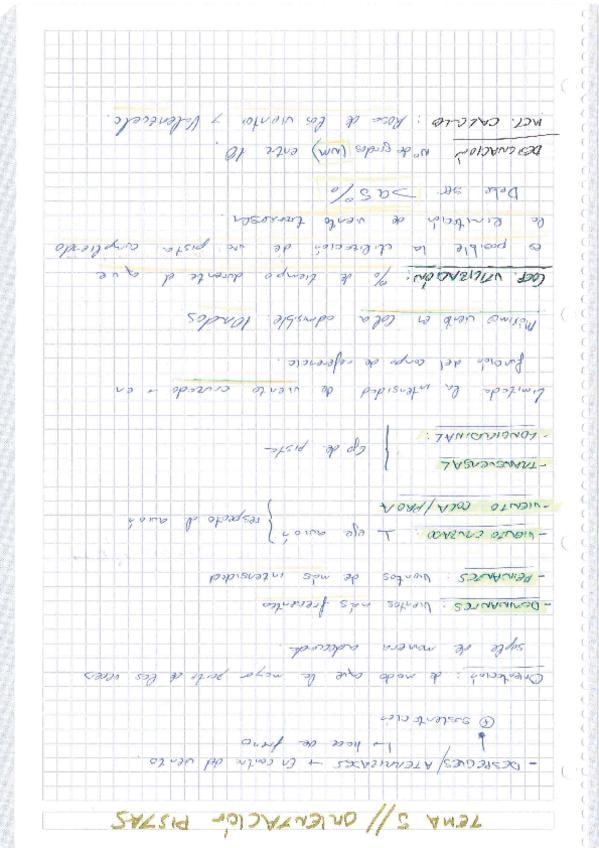 TEMA 5 // ORIENTACIÓN PISTAS
- DESPEGUES / ATERRIZAJES → En contra del viento.
↳ hace de freno
⊕ sustentación
Orientación: de modo que la mayor parte de las veces
sople de manera adecuada.
- DOMINANTES: Vientos más frecuentes
- REINANTES: Vientos de más intensidad
- VIENTO CRUZADO: ⊥ eje avión } respecto al avión
- VIENTO COLA / PROA
- TRANSVERSAL } de pista
- LONGITUDINAL:
Limitada la intensidad de viento cruzado → en
función del campo de referencia.
Máximo viento en cola admisible: 10 nudos
COEF. UTILIZACIÓN: % de tiempo durante el que
es posible la utilización de una pista cumpliendo
la limitación de viento transversal.
Debe ser >95%
DESIGNACIÓN Nº de grados (NM) entre 10.
MET. CÁLCULO: Rosa de los vientos y